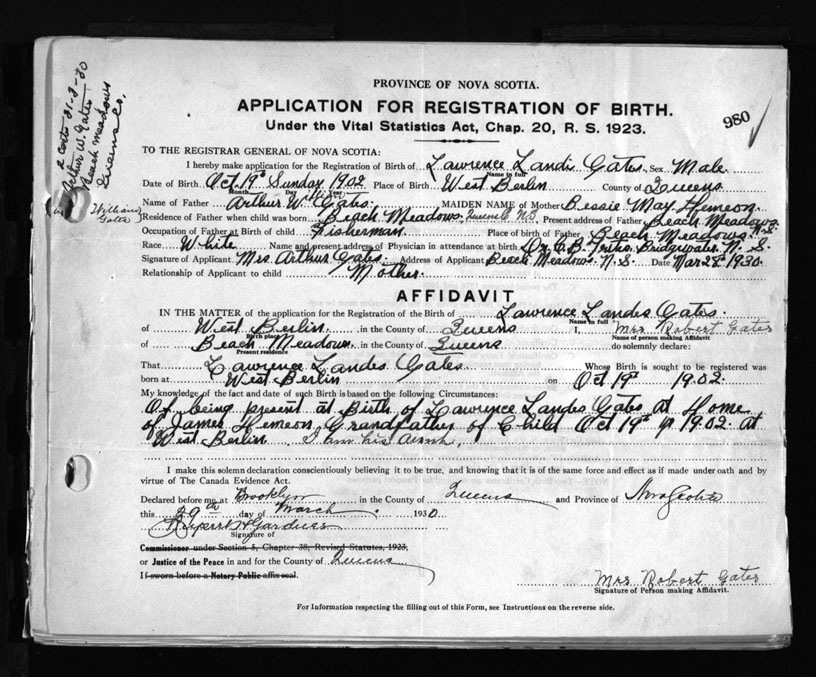 2 certs 31-3-30
Arthur W. Gates
Beach Meadows
Queens Co.
William
Gates
980
PROVINCE OF NOVA SCOTIA.
APPLICATION FOR REGISTRATION OF BIRTH.
Under the Vital Statistics Act, Chap. 20, R. S. 1923.
TO THE REGISTRAR GENERAL OF NOVA SCOTIA:
I hereby make application for the Registration of Birth of Lawrence Landis Gates. Sex Male
Name in full
Date of Birth Oct. 19th Sunday 1902 Place of Birth West Berlin County of Queens
Month Day Year
Name of Father Arthur Wm Gates. MAIDEN NAME of Mother Bessie May Hemeon.
Residence of Father when child was born Beach Meadows. Queens Co N.S. Present address of Father Beach Meadows N.S.
Occupation of Father at Birth of child Fisherman. Place of birth of Father Beach Meadows N.S.
Race White Name and present address of Physician in attendance at birth Dr. C. B. Bridgewater. N. S.
Signature of Applicant Mrs. Arthur Gates. Address of Applicant Beach Meadows. N. S. Date Mar 28th 1930.
Relationship of Applicant to child Mother.
AFFIDAVIT
IN THE MATTER of the application for the Registration of the Birth of Lawrence Landes Gates.
Name in full
of West Berlin. in the County of Queens I, Mrs Robert Gates
Birth place Name of person making Affidavit
of Beach Meadows. in the County of Queens do solemnly declare:
Present residence
That Lawrence Landes Gates. Whose Birth is sought to be registered was
born at West Berlin on Oct 19th 1902.
My knowledge of the fact and date of such Birth is based on the following Circumstances:
Of being present at Birth of Lawrence Landes Gates at Home
of James Hemeon Grandfather of Child Oct 19th 1902. at
West Berlin. I am his Aunt.
I make this solemn declaration conscientiously believing it to be true, and knowing that it is of the same force and effect as if made under oath and by
virtue of The Canada Evidence Act.
Declared before me at Brooklyn in the County of Queens and Province of Nova Scotia
this 29th day of March 1930
Gardner
Signature of
Commissioner under Section 5, Chapter 38, Revised Statutes, 1923,
or Justice of the Peace in and for the County of Queens
If sworn before a Notary Public affix seal.
Mrs Robert Gates
Signature of Person making Affidavit.
For Information respecting the filling out of this Form, see Instructions on the reverse side.